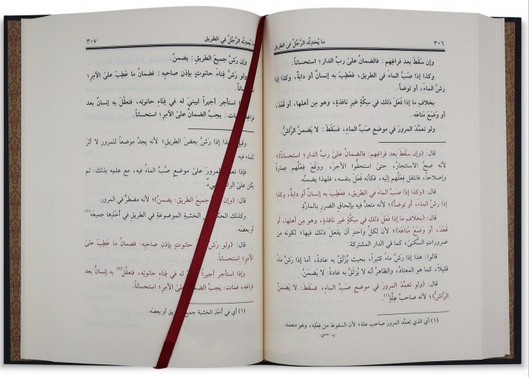 ٣٠٦ ما يُحدِثُه الرَّجُلُ في الطريق
وإن سقَطَ بعد فراغِهم: فالضمانُ على ربِّ الدار؛ استحساناً.
وكذا إذا صَبَّ الماءَ في الطريق، فعَطِبَ به إنسانٌ أو دابةٌ، وكذا إذا
رشَّ الماءَ، أو توضأ.
بخلافِ ما إذا فَعَلَ ذلك في سِكَّةٍ غيرِ نافذةٍ، وهو مِن أهلها، أو قَعَدَ،
أو وَضَعَ مَتاعَه.
ولو تعمَّد المرورَ في موضعِ صبِّ الماء، فسَقَطَ: لا يَضمنُ الرَّاشُّ.
قال: (وإن سقَطَ بعد فراغِهم: فالضمانُ على ربِّ الدار؛ استحساناً)؛
لأنه صحَّ الاستئجارُ، حتى استحقُّوا الأجرَ، ووَقَعَ فِعلُهم عِمارةً
وإصلاحاً، فانتقل فِعلُهم إليه، فكأنه فَعَلَ بنفسه، فلهذا يضمنُه.
قال: (وكذا إذا صَبَّ الماءَ في الطريق، فعَطِبَ به إنسانٌ أو دابةٌ، وكذا
إذا رشَّ الماءَ، أو توضأ)؛ لأنه متعدٍّ فيه بإلحاق الضررِ بالمارَّة.
قال: (بخلافِ ما إذا فَعَلَ ذلك في سِكَّةٍ غيرِ نافذةٍ، وهو مِن أهلها، أو
قَعَدَ، أو وَضَعَ مَتاعَه)؛ لأن لكلِّ واحدٍ أن يفعل ذلك فيها؛ لكونه من
ضرورات السُّكنى، كما في الدار المشتركة.
قالوا: هذا إذا رشَّ ماءً كثيراً، بحيث يُزْلَقُ به عادةً، أما إذا رشَّ ماءً
قليلاً، كما هو المعتادُ، والظاهرُ أنه لا يُزْلَقُ به عادةً: لا يَضمنُ.
قال: (ولو تعمَّد المرورَ في موضعِ صبِّ الماء، فسَقَطَ: لا يَضمنُ
الرَّاشُّ)؛ لأنه صاحبُ عِلَّةٍ(١).
(١) أي الذي تعمَّد المرور صاحب علة؛ لأن السقوط من فِعْلِه، وهو متعمد.
ما يُحدِثُه الرَّجُلُ في الطريق ٣٠٧
وإن رشَّ جميعَ الطريق: يضمنُ.
ولو رشَّ فِناءَ حانوتٍ بإذن صاحبِه: فضمانُ ما عَطِبَ على الآمِرِ؛
استأجر أجيراً ليبنيَ له في فِناءِ حانوته، فتعلَّق به إنسانٌ بعد
فمات: يجبُ الضمانُ على الآمِرِ؛ استحساناً.
إذا رشَّ بعضَ الطريق؛ لأنه يجدُ موضعاً للمرور لا أثرَ
للماء فيه.
فإذا تعمَّد المرورَ على موضع صبِّ الماء فيه، مع علمه بذلك: لم
يكن على
قال: (وإن رشَّ جميعَ الطريق: يضمنُ)؛ لأنه مضطرٌّ في المرور.
وكذلك الخشبةُ الموضوعةُ في الطريق في أخْذِها جميعَه(١)
أو بعضَه.
قال: (ولو رشَّ حانوتٍ بإذن صاحبِه: فضمانُ ما عَطِبَ على
الآمِرِ؛ استحساناً.
وإذا استأجر أجيراً له في فِناءِ حانوته، فتعلَّق به إنسانٌ بعد
فراغِه، فمات: يجبُ الضمانُ
(١) أي في أخْذ الخشبة جميعَ الطريق أو بعضَه.